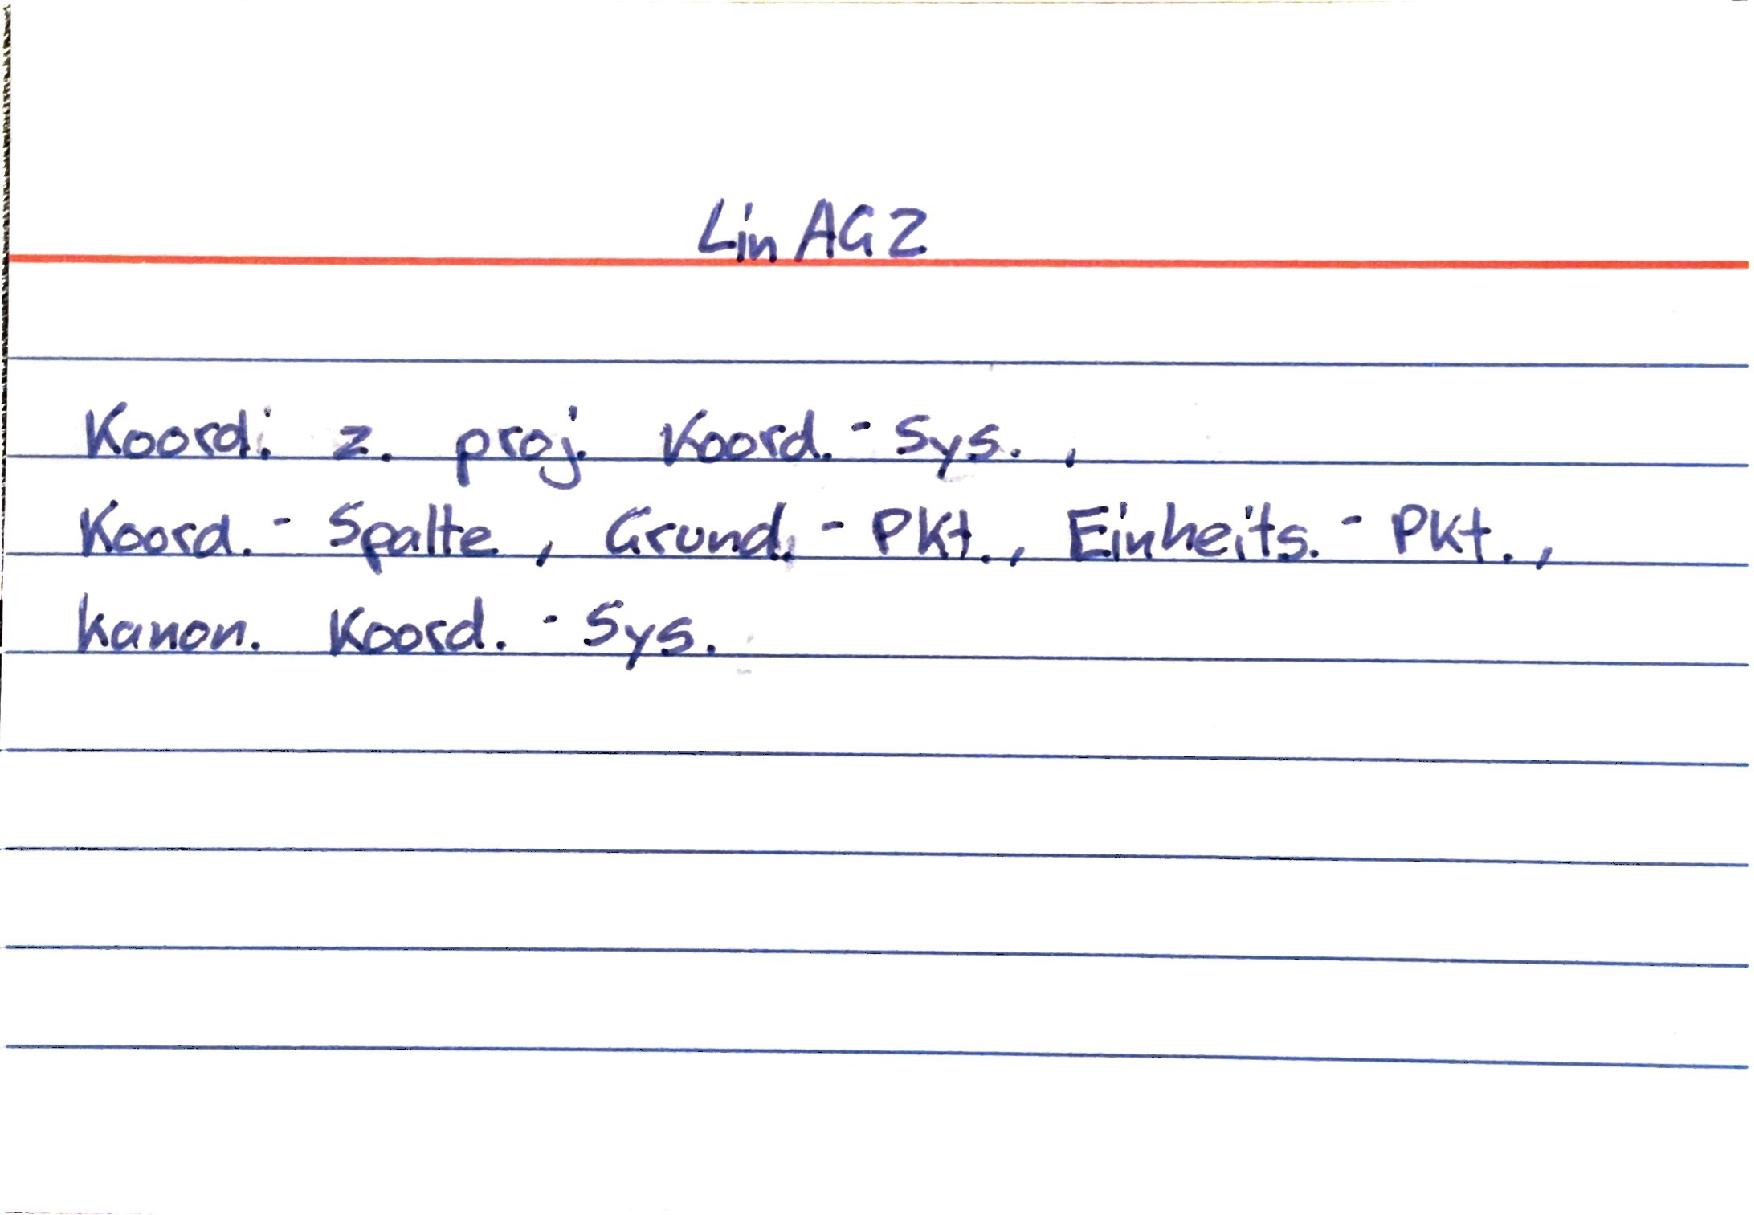 Lin AG 2
Koord. z. proj. Koord.-Sys.,
Koord.-Spalte, Grund.-Pkt., Einheits.-Pkt.,
kanon. Koord.-Sys.